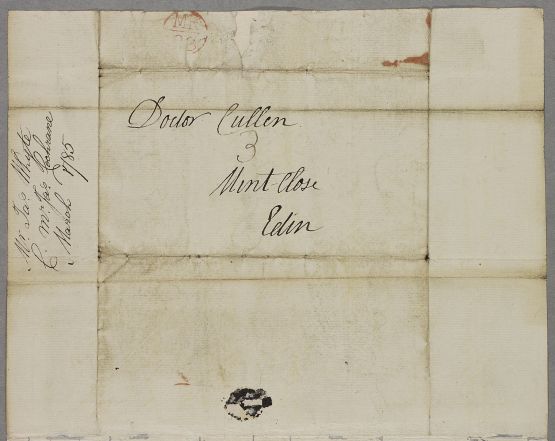 MR
23
Doctor Cullen
3
Mint Close
Edin
Mr. Jas. Whyte
C. Mr. Jas. Cochrane
March 1785